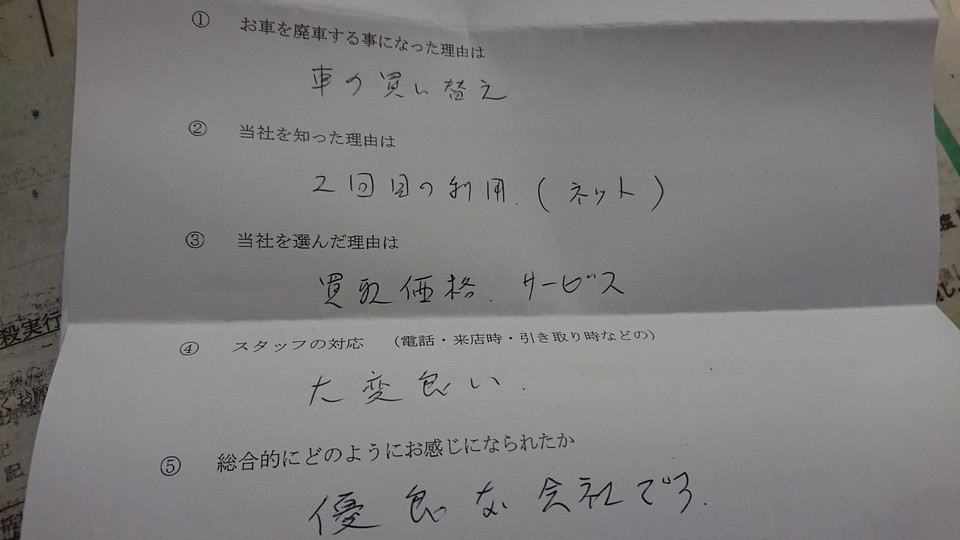 ① お車を廃車する事になった理由は
車の買い替え
② 当社を知った理由は
2回目の利用.(ネット)
③ 当社を選んだ理由は
買取価格.サービス
④ スタッフの対応 (電話・来店時・引き取り時などの)
大変良い.
⑤ 総合的にどのようにお感じになられたか
優良な会社でう.
殺実行
くお願
記